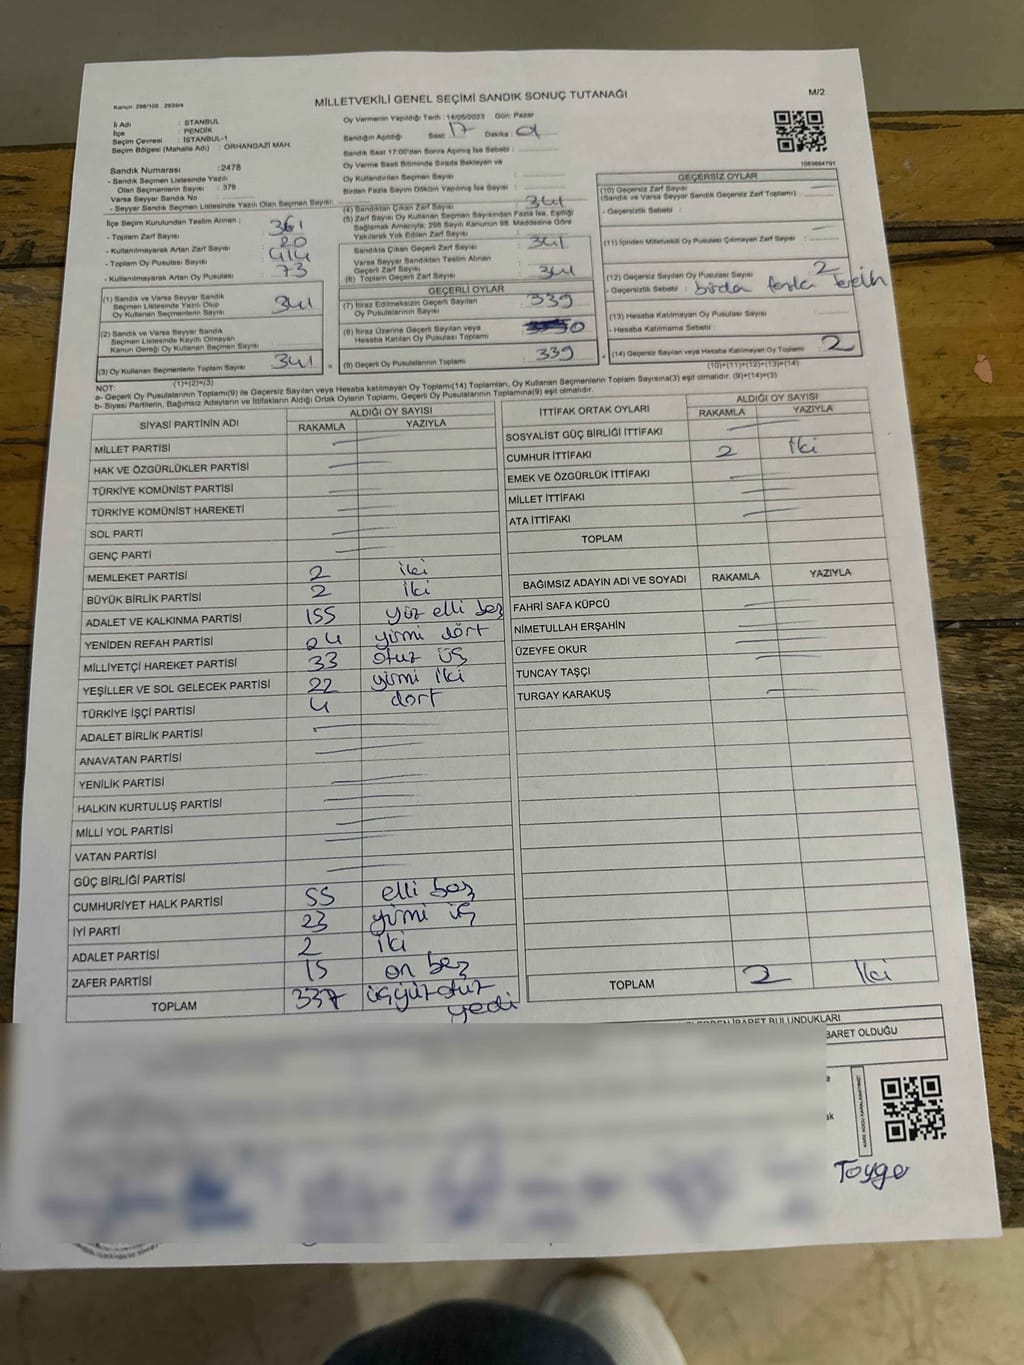 Kanun: 298/105 , 2839/4
MİLLETVEKİLİ GENEL SEÇİMİ SANDIK SONUÇ TUTANAĞI
M/2
İl Adı : İSTANBUL
İlçe : PENDİK
Seçim Çevresi : İSTANBUL-1
Seçim Bölgesi (Mahalle Adı) : ORHANGAZİ MAH.
Sandık Numarası :2478
- Sandık Seçmen Listesinde Yazılı
Olan Seçmenlerin Sayısı : 379
Varsa Seyyar Sandık No :
- Seyyar Sandık Seçmen Listesinde Yazılı Olan Seçmen Sayısı:
Oy Vermenin Yapıldığı Tarih : 14/05/2023 Gün: Pazar
Sandığın Açıldığı Saat : 17 Dakika :
Sandık Saat 17:00'den Sonra Açılmış İse Sebebi :
Oy Verme Saati Bitiminde Sırada Bekleyen ve
Oy Kullandırılan Seçmen Sayısı :
Birden Fazla Sayım Döküm Yapılmış İse Sayısı :
1083684791
İlçe Seçim Kurulundan Teslim Alınan :
- Toplam Zarf Sayısı : 361
- Kullanılmayarak Artan Zarf Sayısı : 20
- Toplam Oy Pusulası Sayısı : 414
- Kullanılmayarak Artan Oy Pusulası : 73
(1) Sandık ve Varsa Seyyar Sandık
Seçmen Listesinde Yazılı Olup
Oy Kullanan Seçmen Sayısı 341
(2) Sandık ve Varsa Seyyar Sandık
Seçmen Listesinde Kayıtlı Olmayan
Kanun Gereği Oy Kullanan Seçmen Sayısı
(3) Oy Kullanan Seçmenlerin Toplam Sayısı 341
(1)+(2)=(3)
(4) Sandıktan Çıkan Zarf Sayısı : 341
(5) Zarf Sayısı Oy Kullanan Seçmen Sayısından Fazla İse, Eşitliği
Sağlamak Amacıyla; 298 Sayılı Kanunun 98. Maddesine Göre
Yakılarak Yok Edilen Zarf Sayısı :
Sandıkta Çıkan Geçerli Zarf Sayısı : 341
Varsa Seyyar Sandıktan Teslim Alınan
Geçerli Zarf Sayısı :
(6) Toplam Geçerli Zarf Sayısı : 341
GEÇERLİ OYLAR
(7) İtiraz Edilmeksizin Geçerli Sayılan
Oy Pusulalarının Sayısı : 339
(8) İtiraz Üzerine Geçerli Sayılan veya
Hesaba Katılan Oy Pusulası Toplamı : 0
(9) Geçerli Oy Pusulalarının Toplamı : 339
GEÇERSİZ OYLAR
(10) Geçersiz Zarf Sayısı
(Sandık ve Varsa Seyyar Sandık Geçersiz Zarf Toplamı) :
- Geçersizlik Sebebi :
(11) İçinden Milletvekili Oy Pusulası Çıkmayan Zarf Sayısı :
(12) Geçersiz Sayılan Oy Pusulası Sayısı : 2
- Geçersizlik Sebebi : birden fazla Tercih
(13) Hesaba Katılmayan Oy Pusulası Sayısı :
- Hesaba Katılmama Sebebi :
(14) Geçersiz Sayılan veya Hesaba Katılmayan Oy Toplamı : 2
(10)+(11)+(12)+(13)=(14)
NOT:
a- Geçerli Oy Pusulalarının Toplamı(9) ile Geçersiz Sayılan veya Hesaba katılmayan Oy Toplamı(14) Toplamları, Oy Kullanan Seçmenlerin Toplam Sayısına(3) eşit olmalıdır. (9)+(14)=(3)
b- Siyasi Partilerin, Bağımsız Adayların ve İttifakların Aldığı Ortak Oyların Toplamı, Geçerli Oy Pusulalarının Toplamına(9) eşit olmalıdır.
SİYASİ PARTİNİN ADI ALDIĞI OY SAYISI
RAKAMLA YAZIYLA
MİLLET PARTİSİ
HAK VE ÖZGÜRLÜKLER PARTİSİ
TÜRKİYE KOMÜNİST PARTİSİ
TÜRKİYE KOMÜNİST HAREKETİ
SOL PARTİ
GENÇ PARTİ
MEMLEKET PARTİSİ 2 iki
BÜYÜK BİRLİK PARTİSİ 2 iki
ADALET VE KALKINMA PARTİSİ 155 yüz elli beş
YENİDEN REFAH PARTİSİ 24 yirmi dört
MİLLİYETÇİ HAREKET PARTİSİ 33 otuz üç
YEŞİLLER VE SOL GELECEK PARTİSİ 22 yirmi iki
TÜRKİYE İŞÇİ PARTİSİ 4 dört
ADALET BİRLİK PARTİSİ
ANAVATAN PARTİSİ
YENİLİK PARTİSİ
HALKIN KURTULUŞ PARTİSİ
MİLLİ YOL PARTİSİ
VATAN PARTİSİ
GÜÇ BİRLİĞİ PARTİSİ
CUMHURİYET HALK PARTİSİ 55 elli beş
İYİ PARTİ 23 yirmi üç
ADALET PARTİSİ 2 iki
ZAFER PARTİSİ 15 on beş
TOPLAM 337 üçyüz otuz
yedi
İTTİFAK ORTAK OYLARI ALDIĞI OY SAYISI
RAKAMLA YAZIYLA
SOSYALİST GÜÇ BİRLİĞİ İTTİFAKI
CUMHUR İTTİFAKI 2 iki
EMEK VE ÖZGÜRLÜK İTTİFAKI
MİLLET İTTİFAKI
ATA İTTİFAKI
TOPLAM
BAĞIMSIZ ADAYIN ADI VE SOYADI RAKAMLA YAZIYLA
FAHRİ SAFA KÜPCÜ
NİMETULLAH ERŞAHİN
ÜZEYFE OKUR
TUNCAY TAŞÇI
TURGAY KARAKUŞ
TOPLAM 2 iki
İBARET BULUNDUKLARI
BARET OLDUĞU
KARE KODU KARALAMAYINIZ!
Toyga